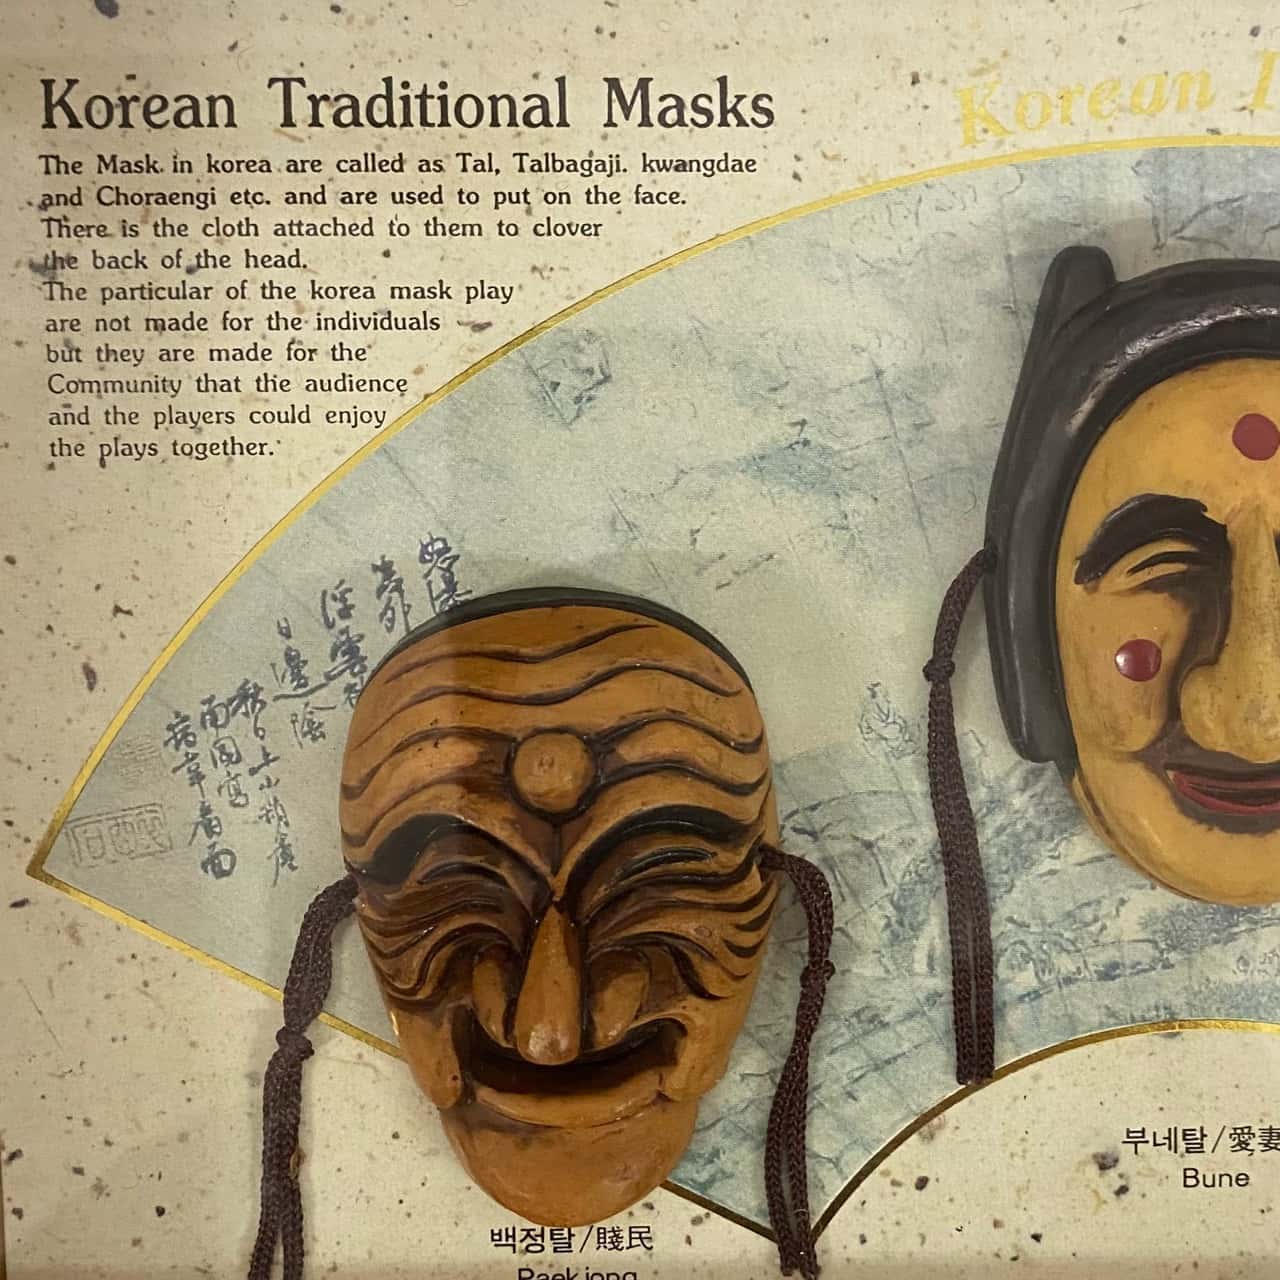 Korean Traditional Masks
Korean
The Mask in korea are called as Tal, Talbagaji. kwangdae
and Choraengi etc. and are used to put on the face.
There is the cloth attached to them to clover
the back of the head.
The particular of the korea mask play
are not made for the individuals
but they are made for the
Community that the audience
and the players could enjoy
the plays together.
浮雲
日邊
부네탈/愛妻
Bune
백정탈/賤民
Paekjong